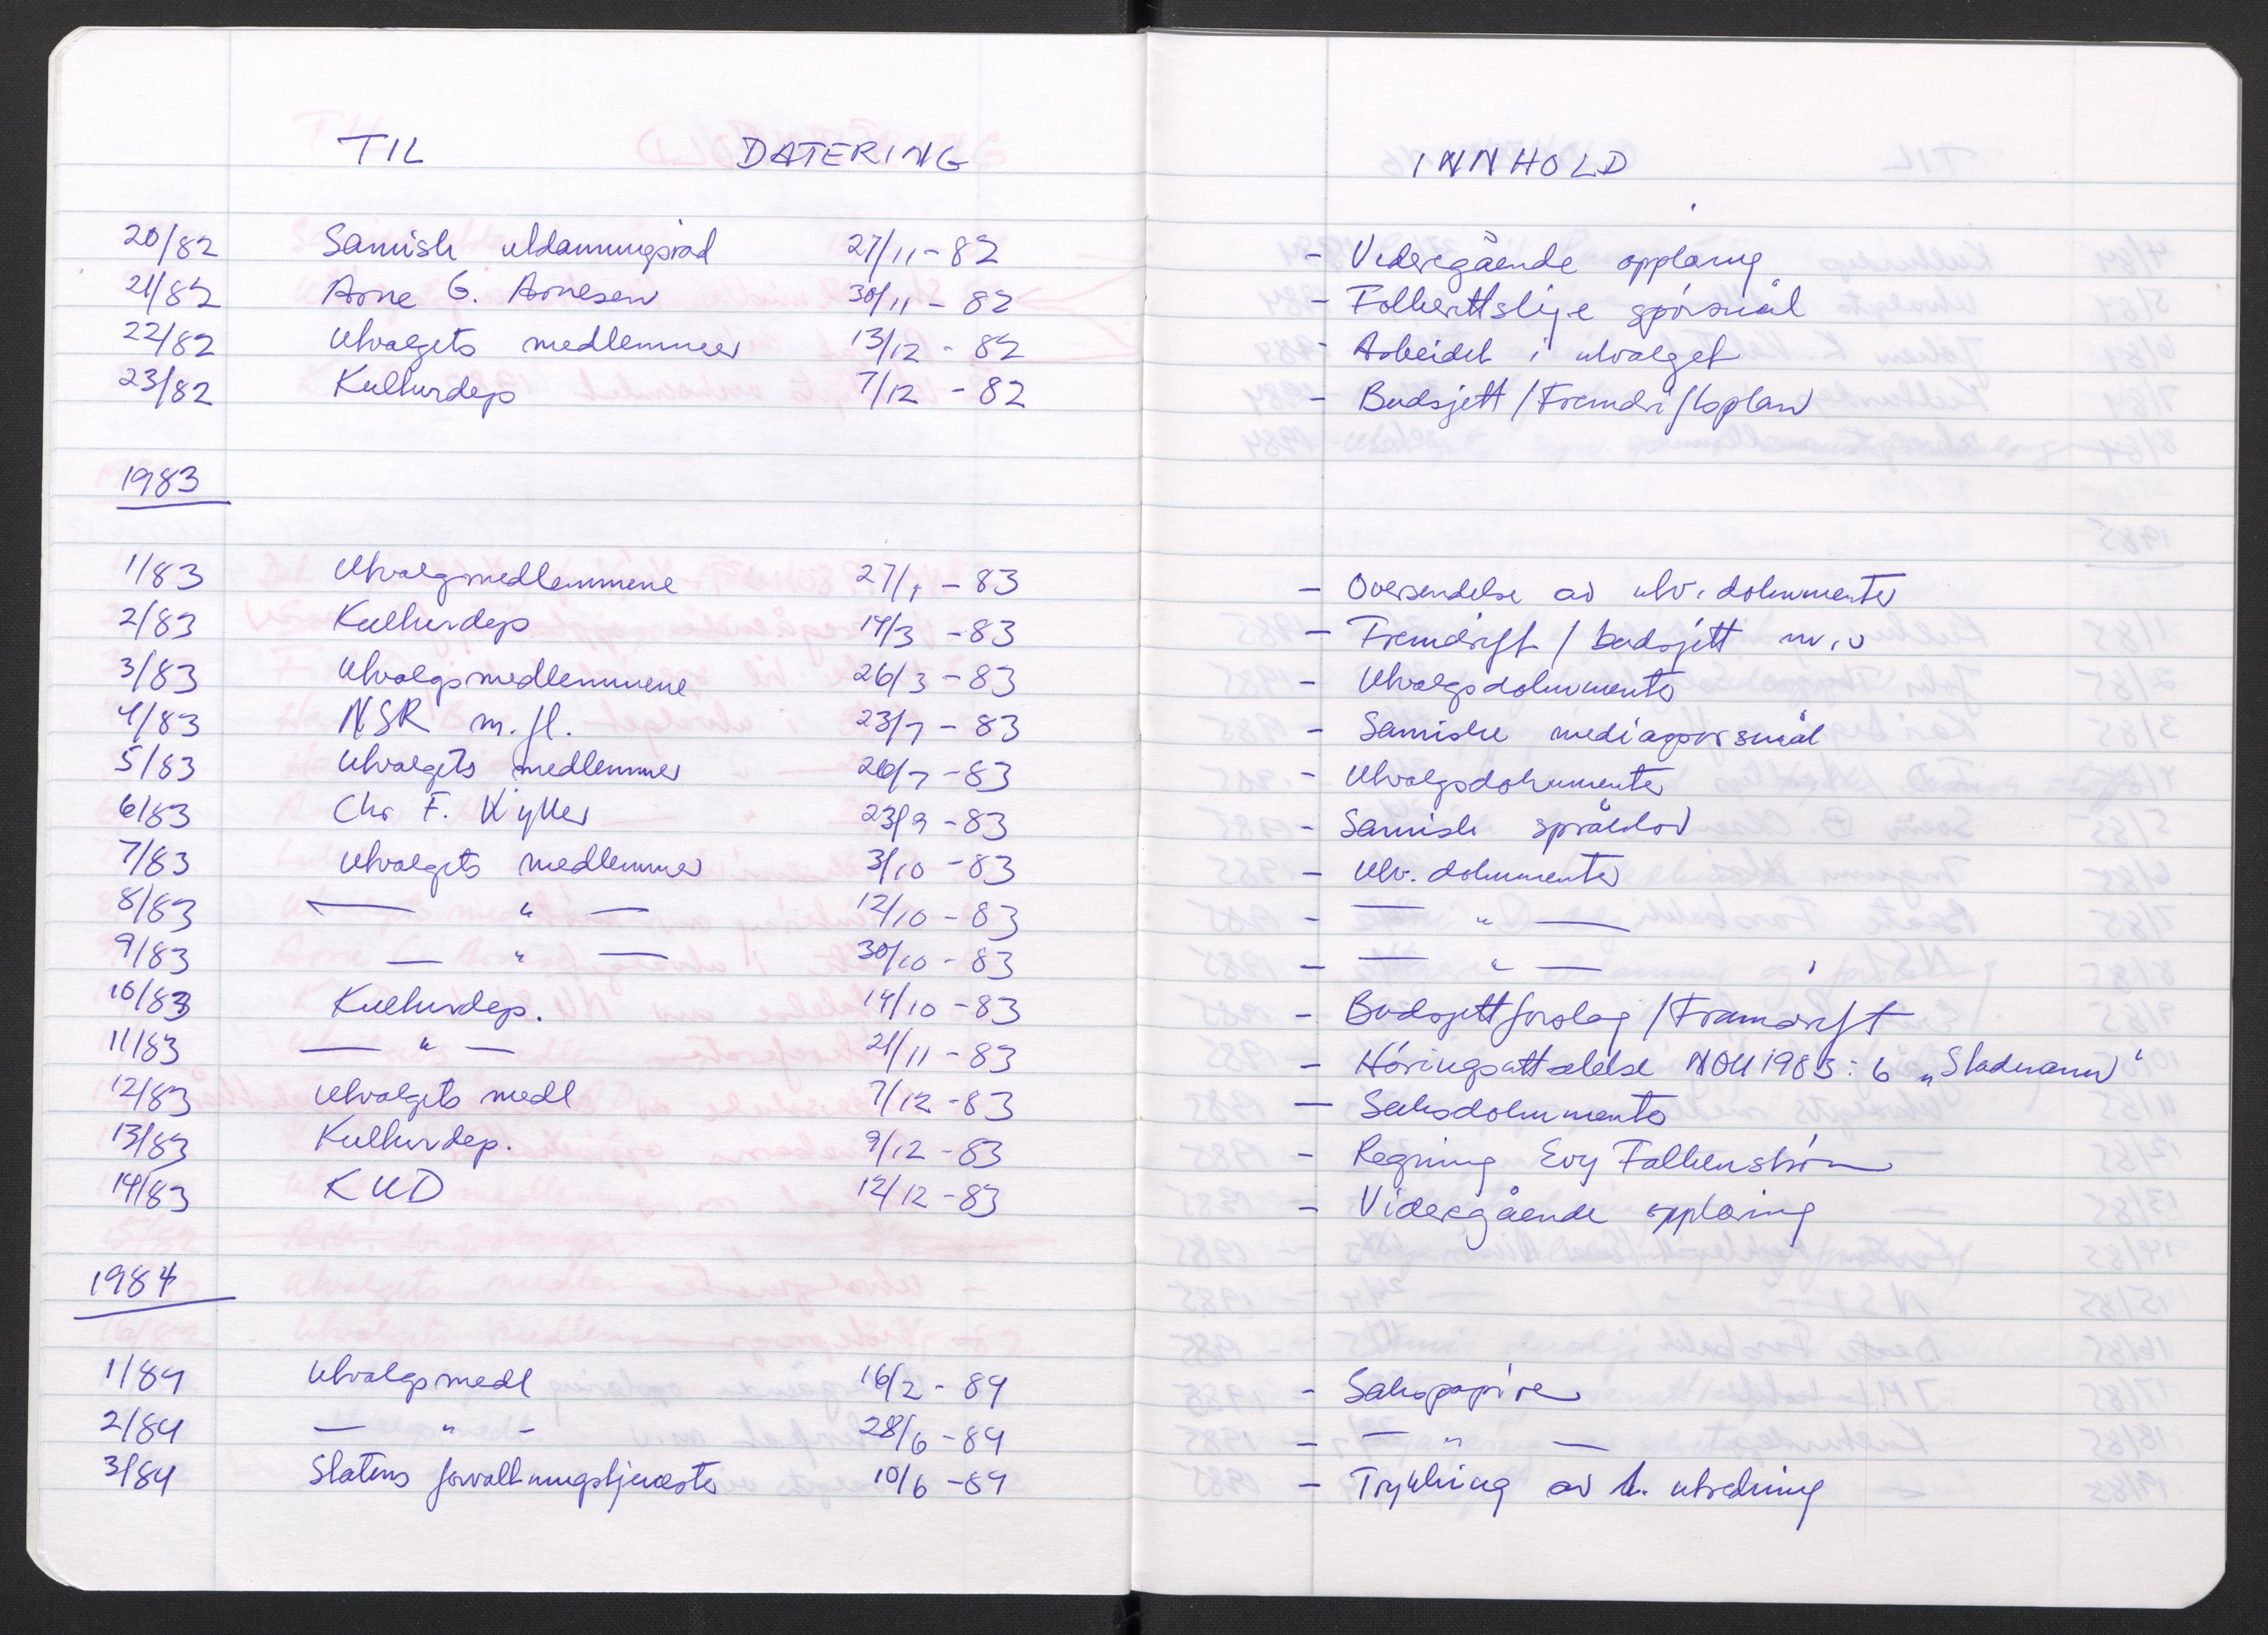 TIL DATERING INNHOLD
20/82 Samisk utdanningsråd 27/11 - 82 - Videregående opplæring
21/82 Arne G. Arnesen 30/11 - 82 - Folkerettslige spørsmål
22/82 Utvalgets medlemmer 13/12 - 82 - Arbeidet i utvalget
23/82 Kulturdep 7/12 - 82 - Budsjett/Fremdriftsplan
1983
1/83 Utvalgsmedlemmene 27/1 - 83 - Oversendelse av utv. dokumenter
2/83 Kulturdep 14/3 - 83 - Fremdrift / budsjett m.v
3/83 Utvalgsmedlemmene 26/3 - 83 - Utvalgsdokumenter
4/83 NSR m.fl. 23/7 - 83 - Samiske mediaspørsmål
5/83 Utvalgets medlemmer 26/7 - 83 - Utvalgsdokumenter
6/83 Chr F. 23/9 - 83 - Samisk språklov
7/83 Utvalgets medlemmer 3/10 - 83 - Utv. dokumenter
8/83 — " — 12/10 - 83 - — " —
9/83 — " — 30/10 - 83 - — " —
10/83 Kulturdep. 14/10 - 83 - Budsjettforslag / Framdrift
11/83 — " — 21/11 - 83 - Høringsuttalelse NOU 1983: 6 „Stadnamn"
12/83 Utvalgets medl 7/12 - 83 - Saksdokumenter
13/83 Kulturdep. 9/12 - 83 - Regning Evy Falkenstrøm
14/83 KUD 12/12 - 83 - Videregående opplæring
1984
1/84 Utvalgsmedl 16/2 - 84 - Sakspapirer
2/84 — " - 28/6 - 84 - — " —
3/84 Statens forvaltningstjeneste 10/6 - 84 - Trykking av 1. utredning